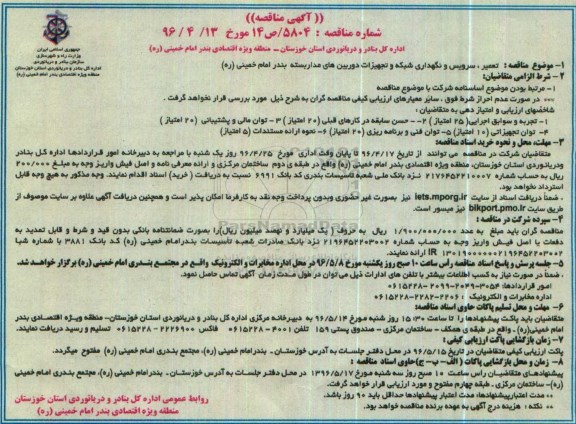 (( آگهی مناقصه))
شماره مناقصه : ۵۸۰۴/ص۱۴ مورخ ۱۳ / ۴ / ۹۶
اداره کل بنادر و دریانوردی استان خوزستان – منطقه ویژه اقتصادی بندر امام خمینی (ره)
جمهوری اسلامی ایران
وزارت راه و شهرسازی
سازمان بنادر و دریانوردی
اداره کل بنادر و دریانوردی استان خوزستان
منطقه ویژه اقتصادی بندر امام خمینی (ره)
۱- موضوع مناقصه : تعمیر ، سرویس و نگهداری شبکه و تجهیزات دوربین های مداربسته بندر امام خمینی (ره)
۲- شرط الزامی متقاضیان:
۱- مرتبط بودن موضوع اساسنامه شرکت با موضوع مناقصه
*** در صورت عدم احراز شرط فوق ، سایر معیارهای ارزیابی کیفی مناقصه گران به شرح ذیل مورد بررسی قرار نخواهد گرفت .
شاخصهای ارزیابی و امتیاز دهی به متقاضیان :
۱- تجربه و سوابق اجرایی (۲۵ امتیاز ) ۲- حسن سابقه در کارهای قبلی (۲۰ امتیاز ) ۳- توان مالی و پشتیبانی (۲۰ امتیاز )
۴- توان تجهیزاتی (۱۰ امتیاز) ۵- توان فنی و برنامه ریزی (۲۰ امتیاز) ۶- نحوه ارائه مستندات (۵ امتیاز)
۳- مهلت، محل و نحوه خرید اسناد مناقصه:
متقاضیان شرکت در مناقصه می توانند از تاریخ ۹۶/۴/۱۷ تا پایان وقت اداری مورخ ۹۶/۴/۲۵ روز یک شنبه با مراجعه به دبیرخانه امور قراردادها اداره کل بنادر
ودریانوردی استان خوزستان، منطقه ویژه اقتصادی بندر امام خمینی (ره) واقع در طبقه ی دوم ساختمان مرکزی و ارائه معرفی نامه و اصل فیش واریز وجه به مبلغ ۲۰۰/۰۰۰
ریال به حساب شماره ۲۱۷۶۴۵۲۲۱۰۰۰۷ نزد بانک ملی شعبه تاسیسات بندری کد بانک ۶۹۹۱ نسبت به دریافت ( خرید) اسناد اقدام نمایند. وجه مذکور به هیچ وجه قابل
استرداد نخواهد بود.
، ضمناً دریافت اسناد از سایت iets.mporg.ir نیز بصورت غیر حضوری وبدون پرداخت وجه نقد به کارفرما امکان پذیر است و همچنین دریافت آگهی علاوه بر سایت موصوف از
طریق سایت bikport.pmo.ir نیز میسور است.
۴- سپرده شرکت در مناقصه :
مناقصه گران باید مبلغ به عدد ۱/۹۰۰/۰۰۰/۰۰۰ ریال به حروف ( یک میلیارد و نهصد میلیون ریال)را بصورت ضمانتنامه بانکی بدون قید و شرط و قابل تمدید به
دفعات یا اصل فیش واریز وجه به حساب شماره ۲۱۹۶۴۵۲۲۰۳۰۰۲ نزد بانک صادرات شعبه تأسیسات بندرامام خمینی (ره) کد بانک ۳۸۸۱ با شماره شبا
IR ۱۳۰۱۹۰۰۰۰۰۰۰۲۱۹۶۴۵۲۲۰۳۰۰۲ ارائه نمایند.
۵- جلسه پرسش و پاسخ اسناد مناقصه رأس ساعت ۱۰ صبح روز یکشنبه مورخ ۹۶/۵/۸ در محل اداره مخابرات و الکترونیک واقع در مجتمع بندری امام خمینی (ره) برگزار خواهد شد.
، ضمناً در صورت نیاز به کسب اطلاعات بیشتر با تلفن های ادارات ذیل می توان در طول مدت زمان آگهی تماس حاصل نمود.
امور قراردادها: ۳۰۵۴-۲۰۴۹-۲۰۹۹-۰۶۱۵۲۲۸
اداره مخابرات و الکترونیک : ۲۲۰۶-۲۲۸۲-۰۶۱۵۲۲۸
۶- مهلت و محل تسلیم پاکات حاوی اسناد مناقصه:
متقاضیان باید پاکت پیشنهادها را تا ساعت ۱۵:۳۰ روز شنبه مورخ ۹۶/۵/۱۴ به دبیرخانه مرکزی اداره کل بنادر و دریانوردی استان خوزستان- منطقه ویژه اقتصادی بندر
امام خمینی(ره) ـ واقع در طبقه ی همکف – ساختمان مرکزی – صندوق پستی ۱۵۹ تلفن ۴۰۰۱-۰۶۱۵۲۲۸ فاکس ۲۲۲۶۹۰۰ -۰۶۱۵۲۲۸ تسلیم و رسید دریافت نمایند.
۷- زمان بازگشایی پاکت ارزیابی کیفی :
پاکت ارزیابی کیفی متقاضیان در تاریخ ۹۶/۵/۱۵ در محل دفتر جلسات به آدرس خوزستان – بندرامام خمینی (ره)، مجتمع بندری امام خمینی (ره) مفتوح میگردد.
۸- زمان و محل بازگشایی پاکات (الف – ب – ج)حاوی اسناد مناقصه :
پیشنهادهای متقاضیان راس ساعت ۱۰ صبح روز سه شنبه مورخ ۱۳۹۶/۵/۱۷ در محل دفتر جلسات به آدرس خوزستان – بندرامام خمینی (ره)، مجتمع بندری امام خمینی
(ره)- ساختمان مرکزی ـ طبقه چهارم مفتوح و مورد ارزیابی قرار خواهد گرفت.
** مدت اعتبارپیشنهادها: مدت اعتبار پیشنهادها حداقل باید ۹۰ روز باشد.
** نکته : هزینه درج آگهی به عهده برنده مناقصه خواهد بود.
روابط عمومی اداره کل بنادر و دریانوردی استان خوزستان
منطقه ویژه اقتصادی بندر امام خمینی (ره)